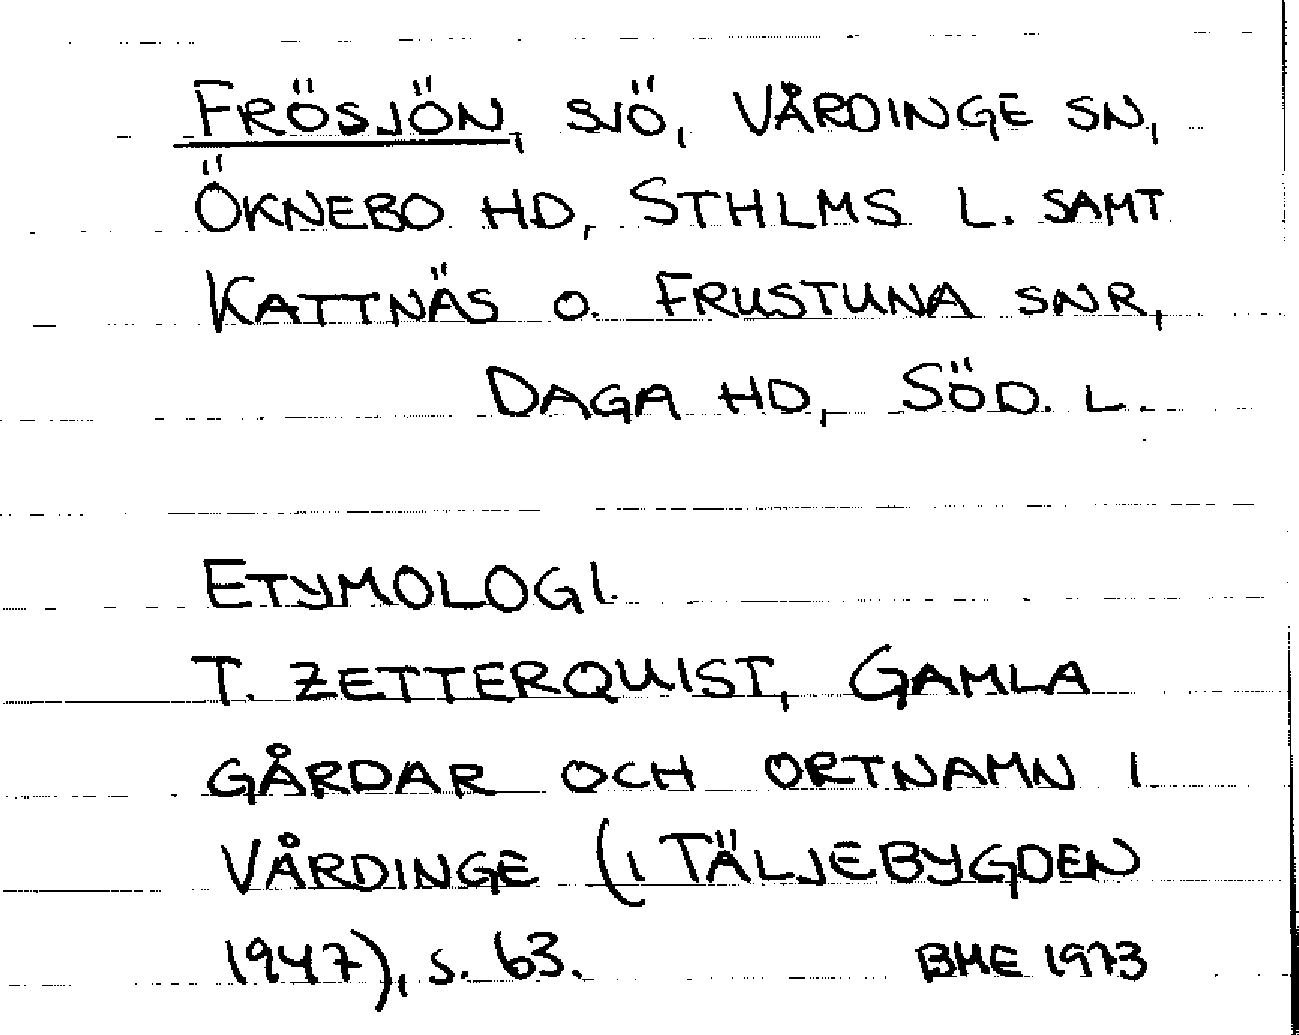 FRÖSJÖN, SJÖ, VÅRDINGE SN,
ÖKNEBO HD, STHLMS L. SAMT
KATTNÄS O. FRUSTUNA SNR,
DAGA HD, SÖD. L.
ETYMOLOGI.
T. ZETTERQUIST, GAMLA
GÅRDAR OCH ORTNAMN I
VÅRDINGE (I TÄLJEBYGDEN
1947), S. 63. BME 1973